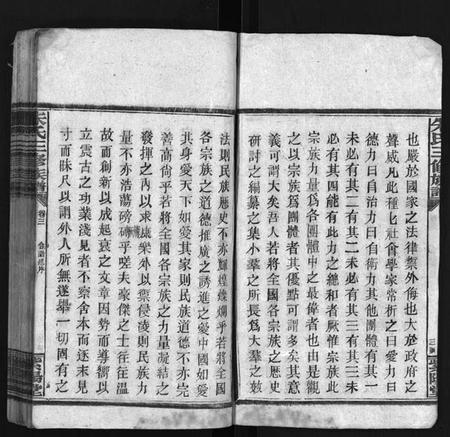 也嚴於國家之法律禦外侮也大於政府之
聲威凡此種匕社會學家常析之曰愛力曰
德力曰自治力曰自衛力其他團體有其一
未必有其二有其二未必有其三有其三未
必有其四能有此力之總和者厥惟宗族故
宗族力量爲各團體中之最偉者也由是觀
之以宗族爲團體者其優點可謂多矣其意
義可謂大矣吾人若將全國各宗族之歷史
研討之編纂之集小羣之所長爲大羣之效
法則民族歷史不亦輝煌燦爛乎若將全國
各宗族之道德推廣之誘進之愛中國如愛
其身愛天下如愛其家則民族道德不亦完
善高尙乎若將全國各宗族之力量凝結之
發揮之內以求康樂外以禦侵淩則民族力
量不亦浩蕩磅礴乎嗟夫豪傑之士往往溫
故而創新以成起衰之文章因勢而導嚮以
立震古之功業淺見者不察舍本而逐末見
寸而昧尺以謂外人所無遂舉一切固有之
朱氏三修族譜
卷三